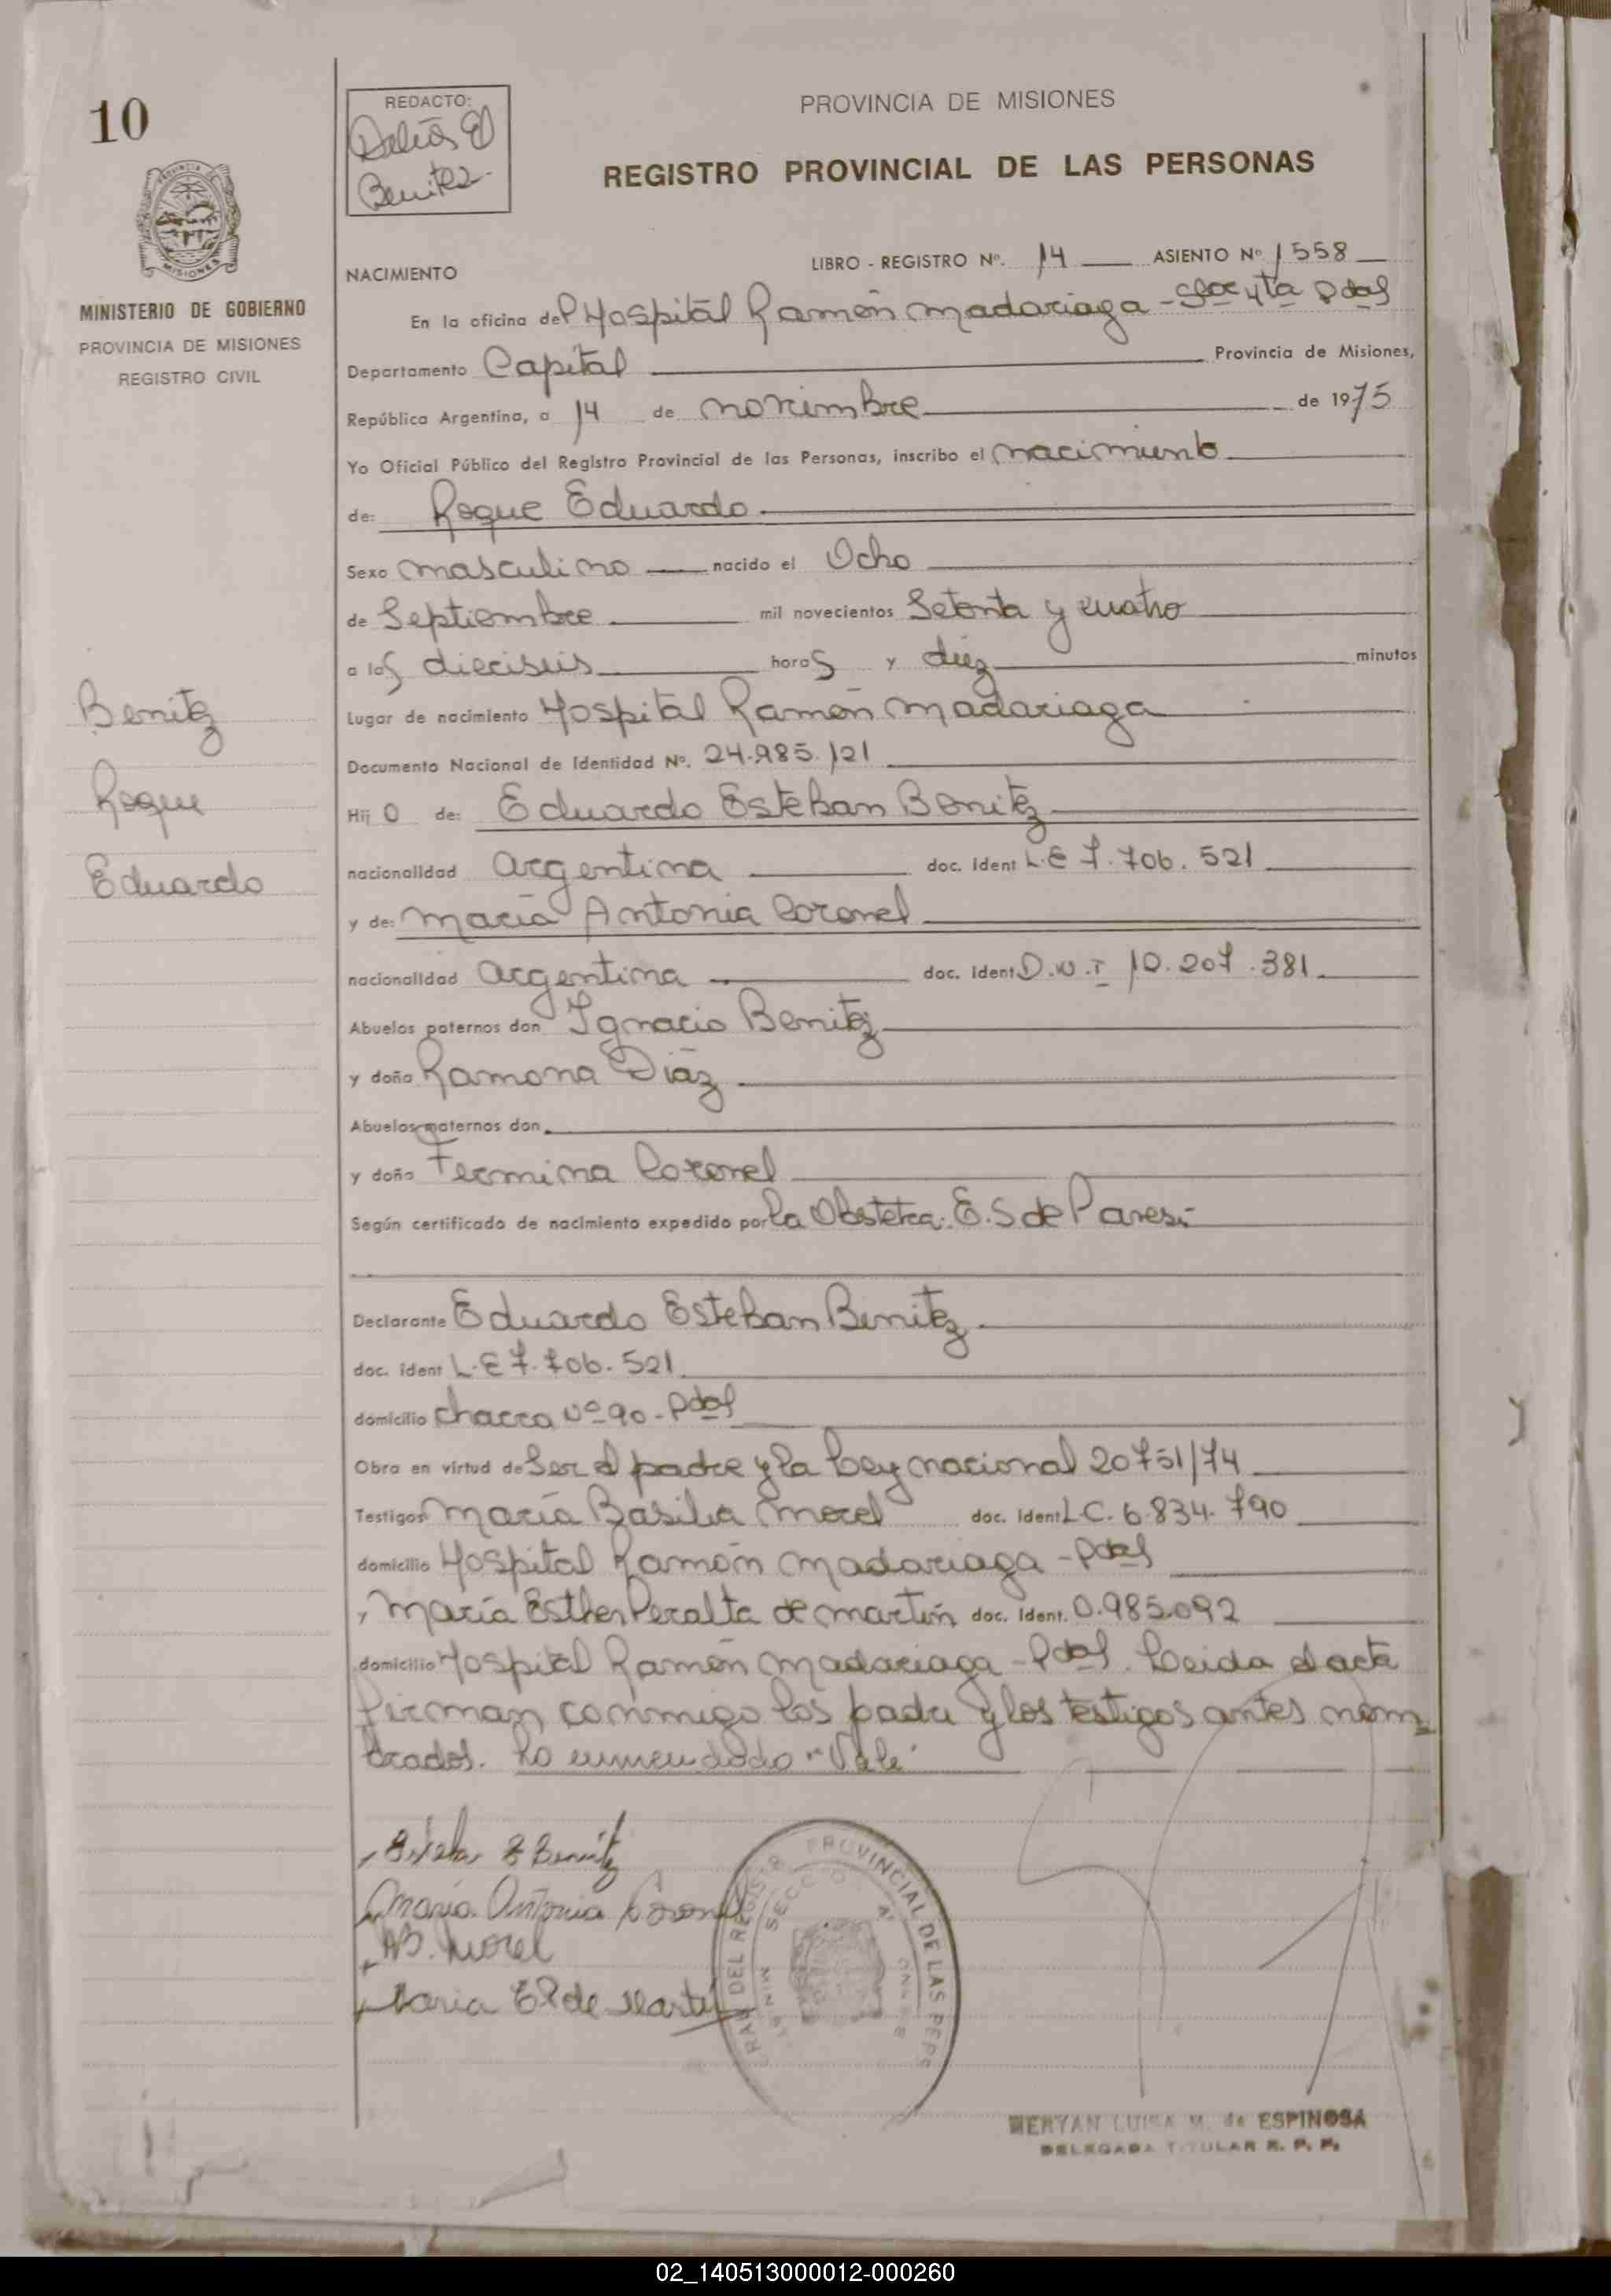 10
REDACTO:
Delia E
Benitez
PROVINCIA DE MISIONES
REGISTRO PROVINCIAL DE LAS PERSONAS
MINISTERIO DE GOBIERNO
PROVINCIA DE MISIONES
REGISTRO CIVIL
LIBRO - REGISTRO Nº. 14 ASIENTO Nº 1558
NACIMIENTO
En la oficina del Hospital Ramón Madariaga - 4ta Pdas
Departamento Capital Provincia de Misiones,
República Argentina, a 14 de noviembre de 1975
Yo Oficial Público del Registro Provincial de las Personas, inscribo el nacimiento
de: Roque Eduardo
Sexo masculino nacido el Ocho
de Septiembre mil novecientos Setenta y cuatro
a las dieciseis horas y diez minutos
Lugar de nacimiento Hospital Ramón Madariaga
Documento Nacional de Identidad Nº. 24.985.121
Hijo de: Eduardo Esteban Benitez
nacionalidad argentina doc. Ident L.E 7.706.521
y de: María Antonia Coronel
nacionalidad argentina doc. Ident D.N.I 10.207.381
Abuelos paternos don Ignacio Benitez
y doña Ramona Diaz
Abuelos maternos don
y doña Fermina Coronel
Según certificado de nacimiento expedido por la Obstetra. E.S de Paresi
Declarante Eduardo Esteban Benitez
doc. ident L.E 7.706.521
domicilio chacra Nº 90 - Pdas
Obra en virtud de ser el padre y la Ley nacional 20751/74
Testigos María Basilia Morel doc. Ident L.C. 6.834.790
domicilio Hospital Ramón Madariaga - Pdas
y María Esther Peralta de Martín doc. Ident. 0.985.092
domicilio Hospital Ramón Madariaga - Pdas. Leida el acta
firman conmigo los padre y los testigos antes nom
brados. Lo enmendado "Vale"
Benitz
Roque
Eduardo
Benitez
María Antonia Coronel
M.B. Morel
Maria E P de Martín
PROVINCIAL DE LAS PERS
DEL REGISTR
MERYAN LUISA M. de ESPINOSA
DELEGADA TITULAR R. P. P.
02_140513000012-000260